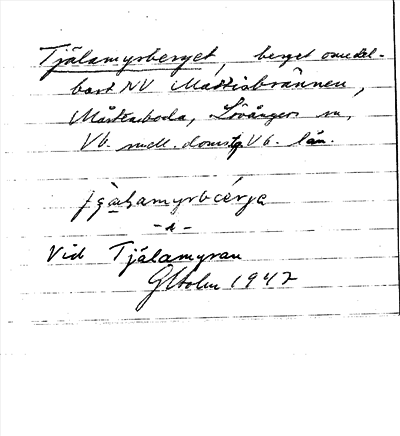 Tjälamyrberget, berget omedel-
bart NV Mattisbrännen,
Mårtensboda, Lövångers sn,
Vb. mell. domsg Vb. län.
-a-
Vid Tjälamyran
GHolm 1947